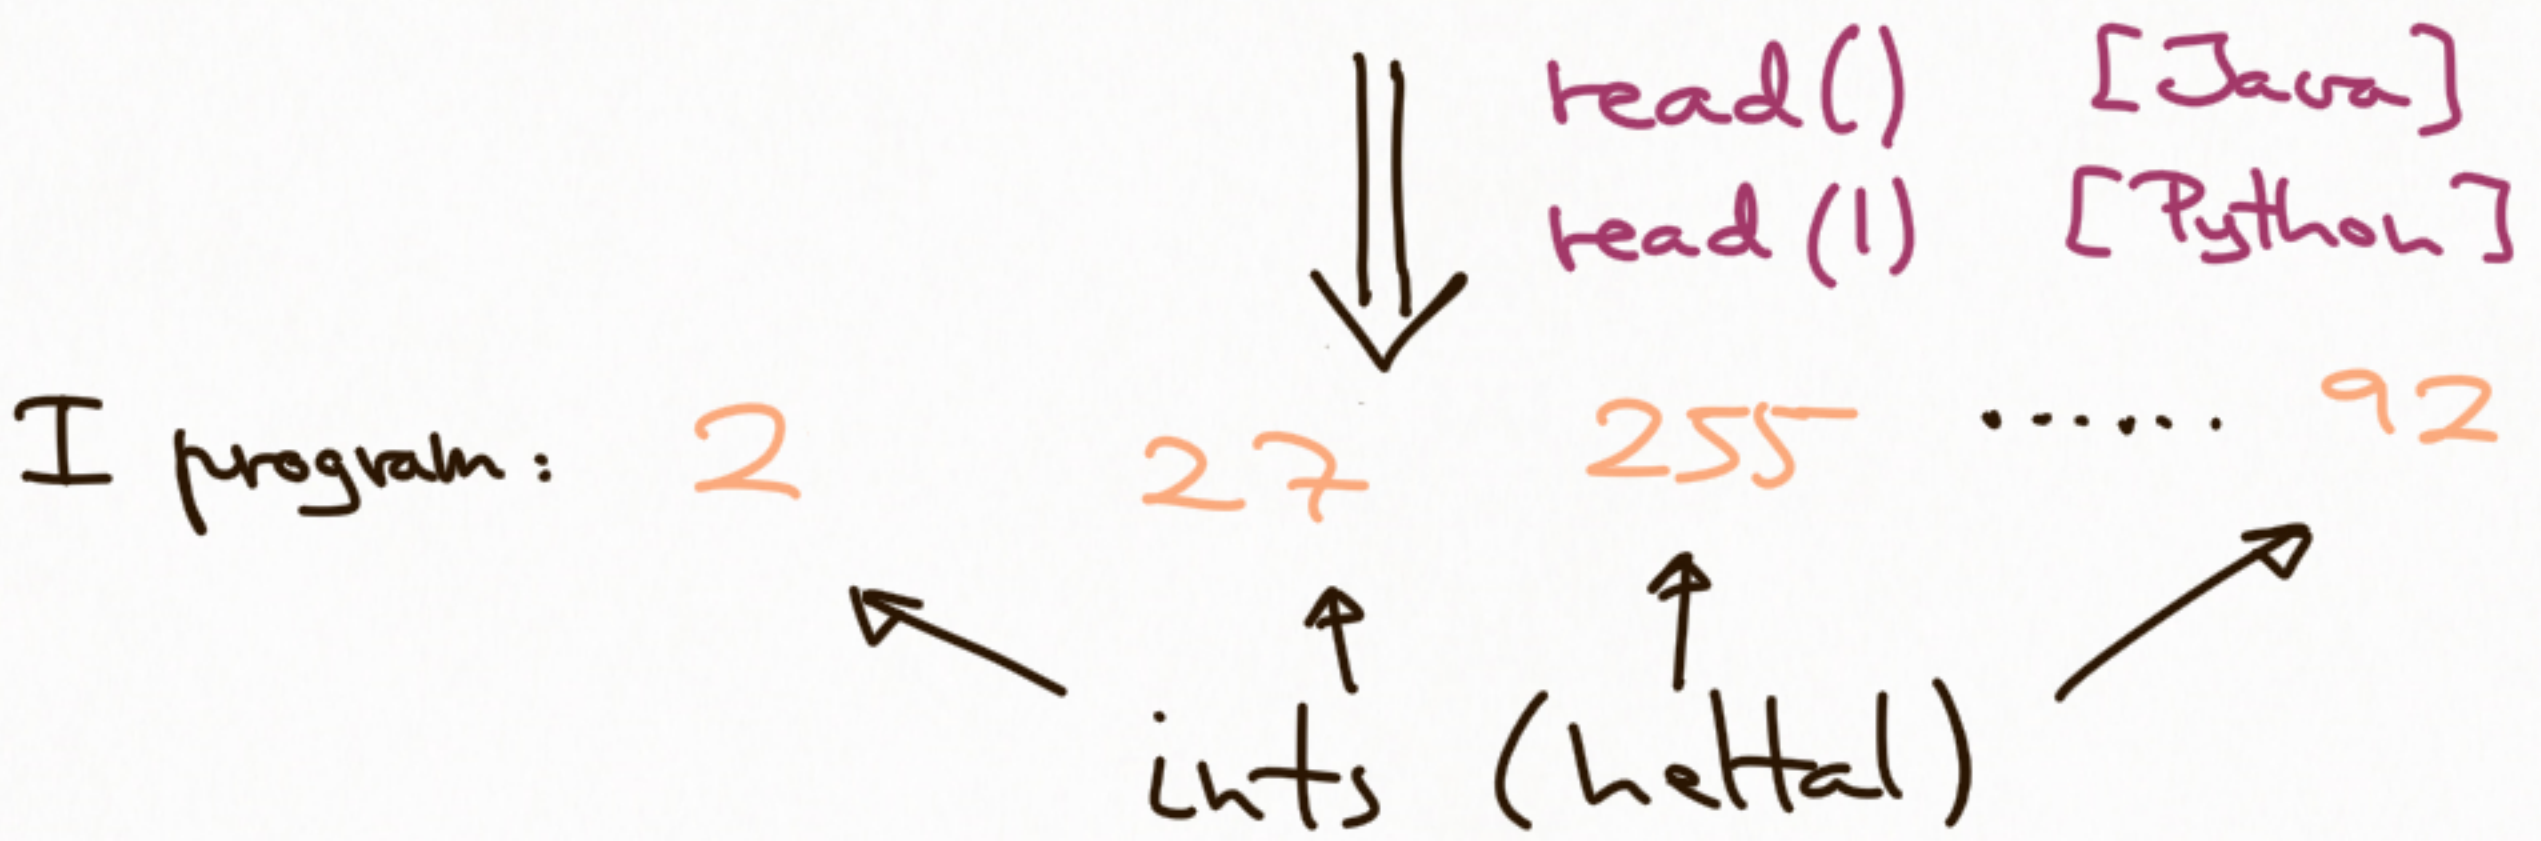 read() [Java]
read(1) [Python]
I program: 2 27 255 ...... 92
ints (heltal)